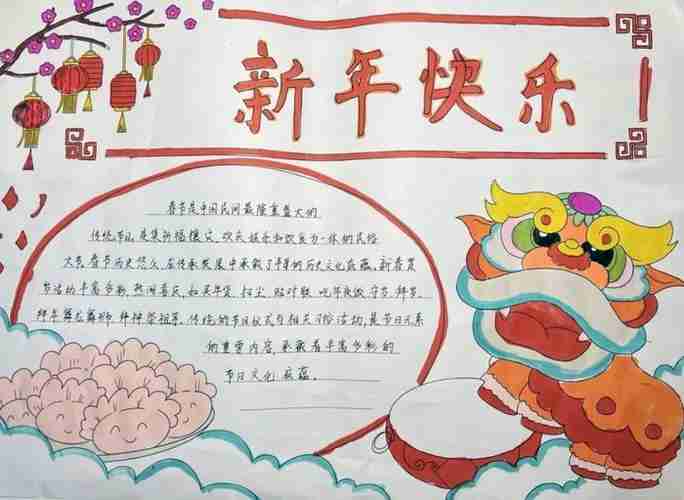 新年快乐
春节是中国民间最隆重盛大的
传统节日,是集祈福攘灾、欢庆娱乐和饮食为一体的民俗
大节。春节历史悠久,在传承发展中承载了丰厚的历史文化底蕴。新春贺
节活动丰富多彩,热闹喜庆,如买年货、扫尘、贴对联、吃年夜饭、守岁、拜岁、
拜年、舞龙舞狮、拜神祭祖等。传统的节日仪式与相关习俗活动,是节日元素
的重要内容,承载着丰富多彩的
节日文化底蕴。